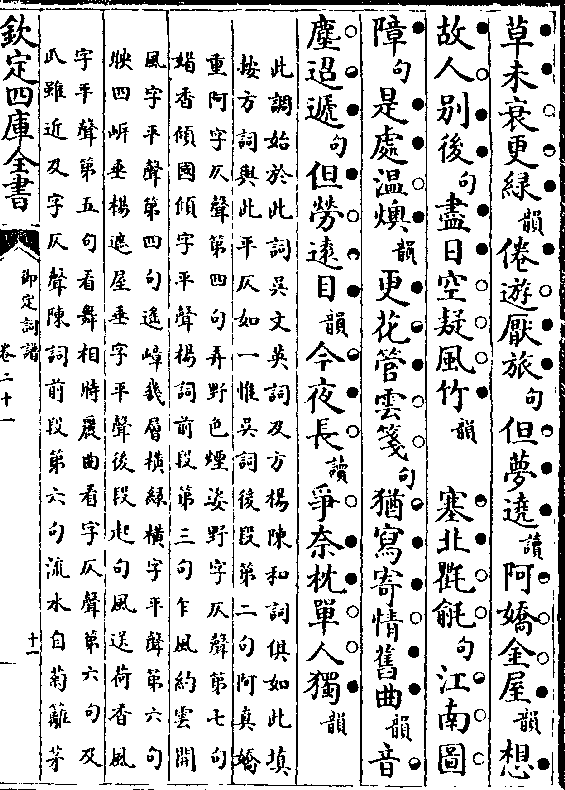 草未衰更緑韻倦遊厭旅句但夢遶讀阿嬌金屋韻想
故人别後句盡日空疑風竹韻　塞北氍毹句江南圖
障句是處温燠韻更花管雲箋句猶寫寄情舊曲韻音
塵迢遞句但勞遠目韻今夜長讀爭奈枕單人獨韻
此調始於此詞吳文英詞及方楊陳和詞俱如此填
按方詞與此平仄如一惟吳詞後段第二句阿真嬌
重阿字仄聲第四句弄野色煙姿野字仄聲第七句
媚香傾國傾字平聲楊詞前段第三句乍風約雲開
風字平聲第四句遙嶂幾層橫緑橫字平聲第六句
映四㟁垂楊遮屋垂字平聲後段起句風送荷香風
字平聲第五句看舞相時麗曲看字仄聲第六句及
瓜雖近及字仄聲陳詞前段第六句流水自菊籬茅
欽定四庫全書
御定詞譜
卷二十一
十一